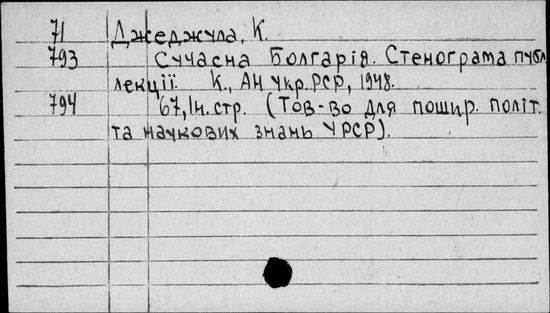 71 Джеджула, К.
793 Сучасна Болгарія. Стенограма публ.
лекції. К., АН Укр.РСР, 1948.
794 67, Iн. стр. (Тов-во для пошир. політ.
та наукових знань УРСР).